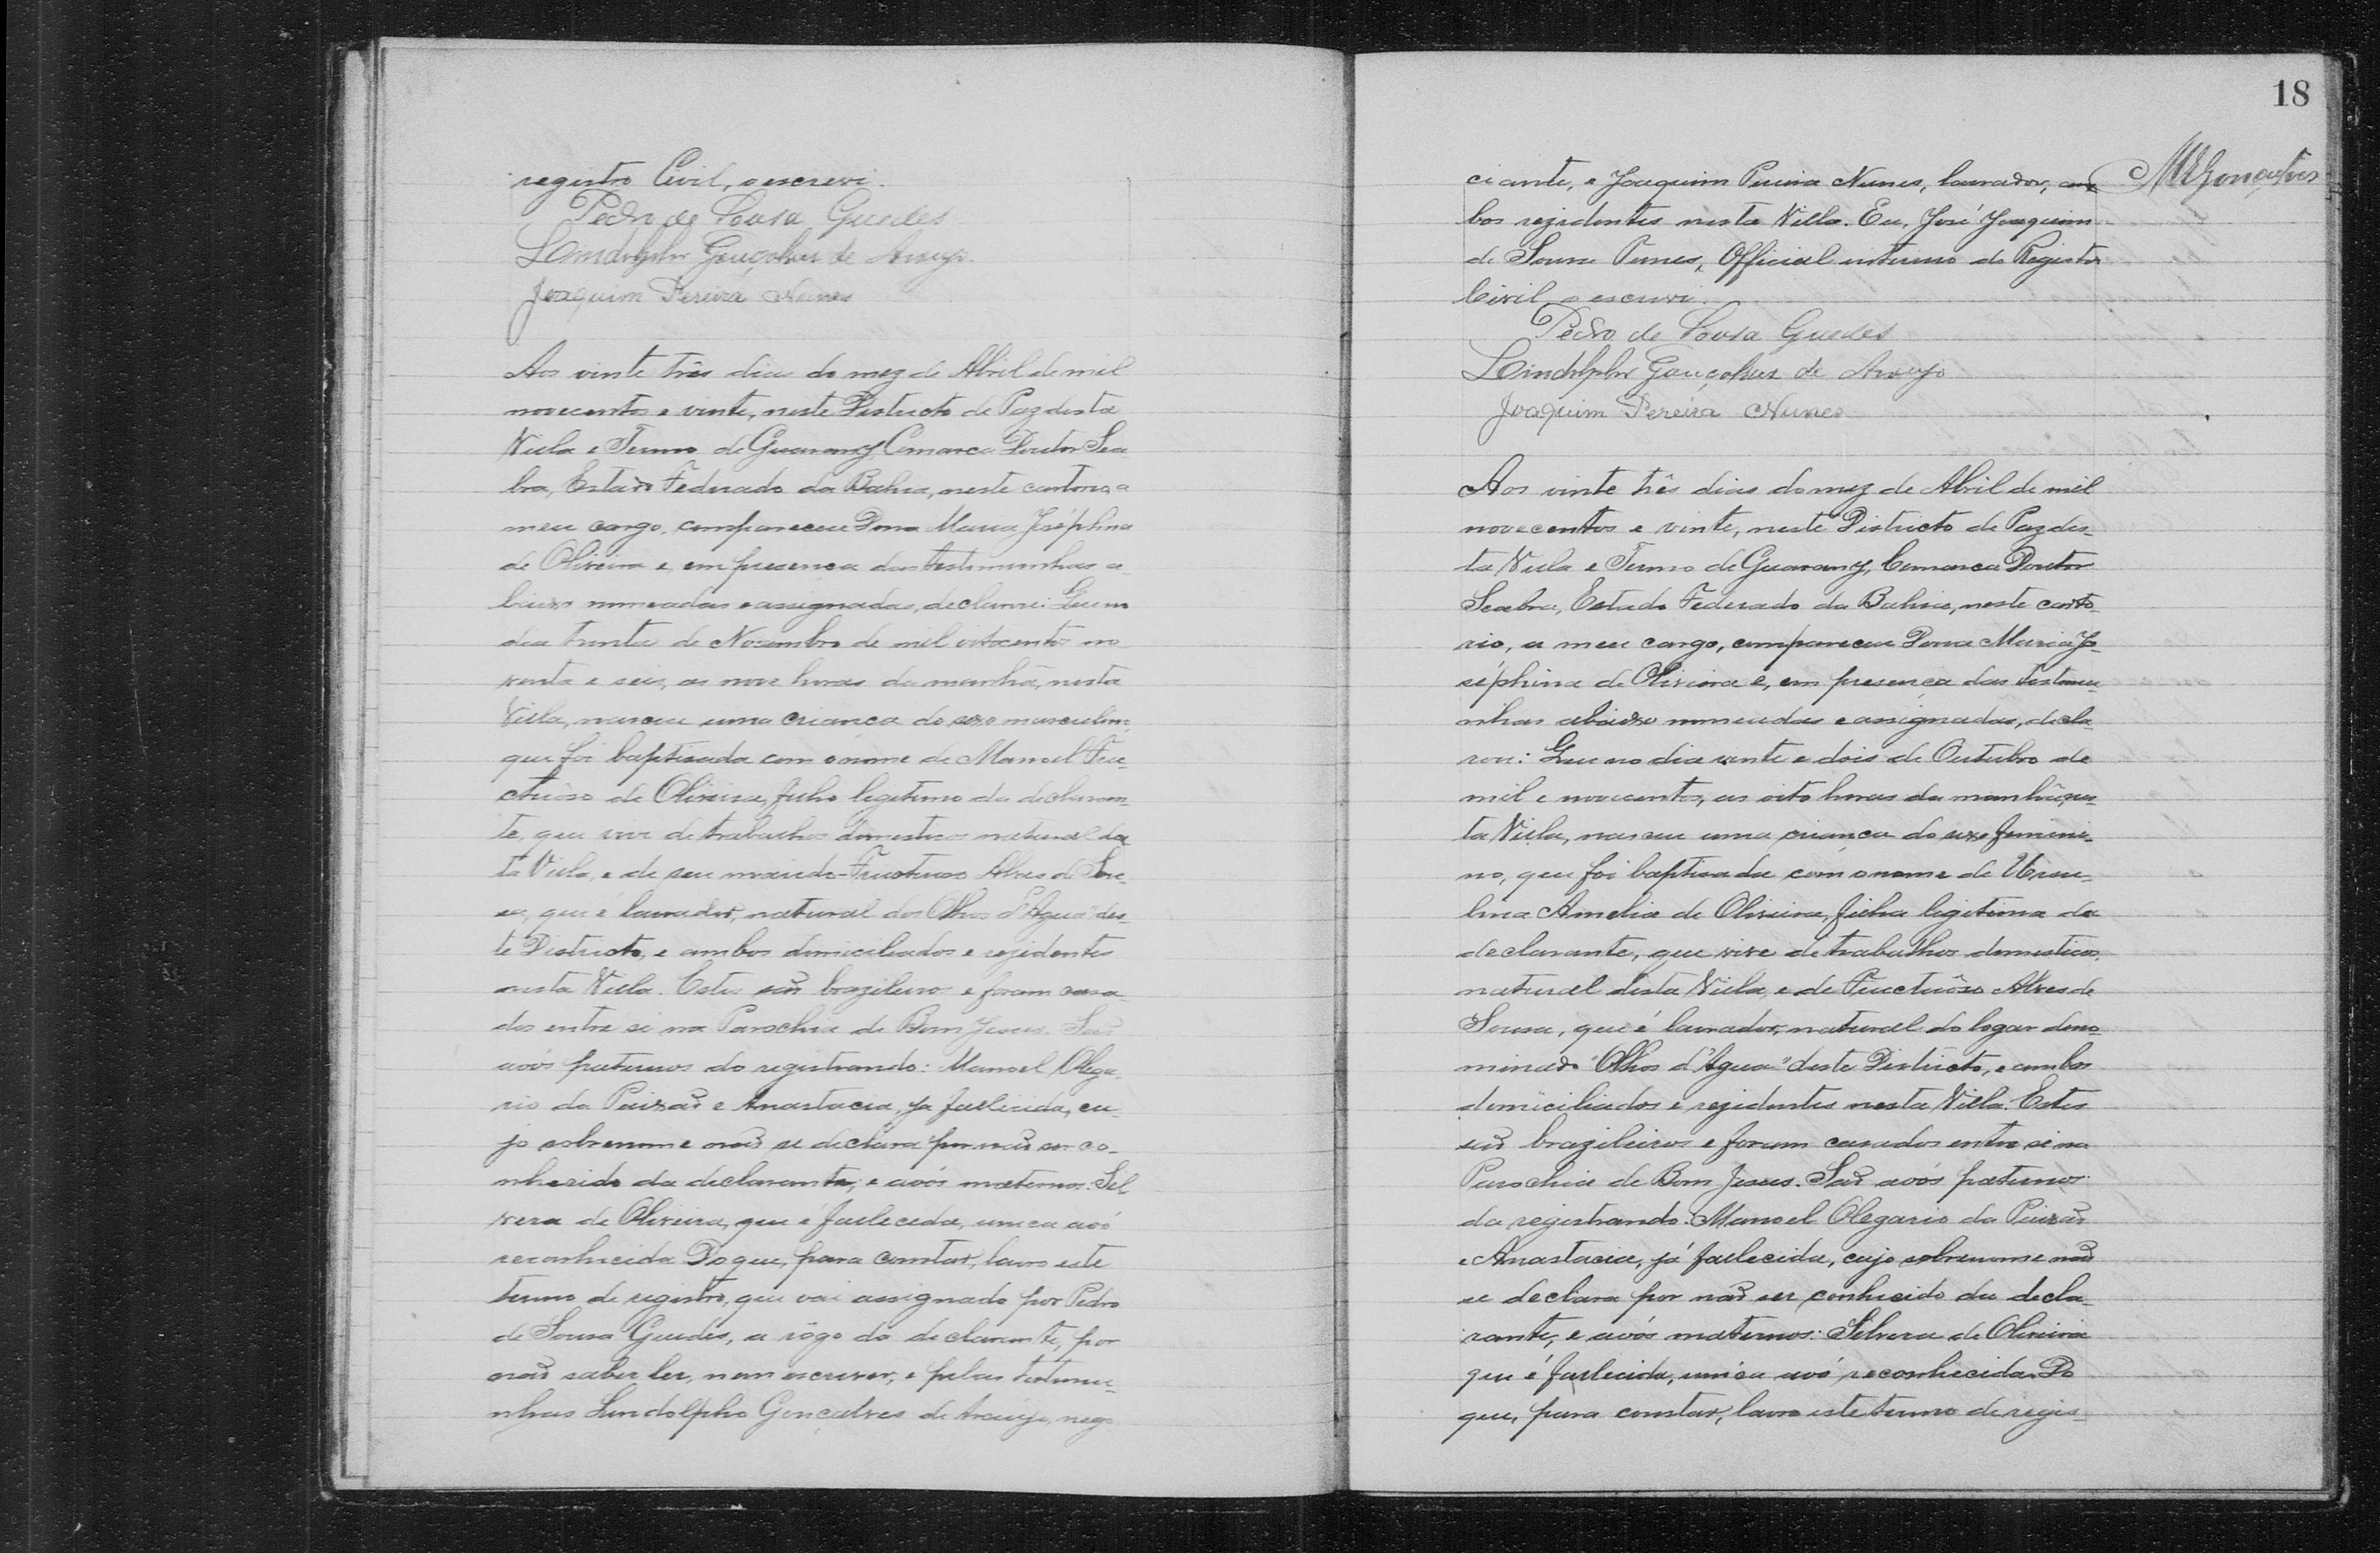 registro Civil, o escrevi.
Pedro de Sousa Guedes
Lindolpho Gonçalves de Araujo.
Joaquim Pereira Nunes
Aos vinte três dias do mez de Abril de mil
novecentos e vinte, neste Districto de Paz desta
Villa e Termo de Guarany, Comarca Doutor Sea
bra, Estado Federado da Bahia, neste cartorio, a
meu cargo, compareceu Dona Maria Joséphina
de Oliveira e, em presença das testimunhas a-
baixo nomeadas e assignadas, declarou: Que no
dia trinta de Novembro de mil oitocentos no
venta e seis, as nove horas da manhã, nesta
Villa, nasceu uma criança do sexo masculino,
que foi baptisada com o nome de Manoel Fru-
ctuòso de Oliveira, filho legitimo da declaran-
te, que vive de trabalhos domesticos natural des
ta Villa, e de seu marido Fructuoso Alves de Sou-
sa, que é lavrador, natural dos Olhos d'Agua" des-
te Districto, e ambos domiciliados e rezidentes
nesta Villa. Estes são brazileiros e foram casa-
dos entre si na Parochia de Bom Jesus. São
avós paternos do registrando: Manoel Olega-
rio da Paixão e Anastacia, ja fallecida, cu-
jo sobrenome não se declara por não ser co-
nhecido da declarante, e avós maternos: Sil-
vera de Oliveira, que é fallecida, unica avó
reconhecida. Do que, para constar, lavro este
termo de registro, que vai assignado por Pedro
de Sousa Guedes, a rôgo da declarante, por
não saber ler, nem escrever, e pelas testemu-
nhas Lindolpho Gonçalves de Araujo, nego
18
MEGonçalves
ciante, e Joaquim Pereira Nunes, lavrador, am-
bos rezidentes nesta Villa. Eu, José Joaquim
de Souza, Official interino do Registro
Civil, o escrevi.
Pedro de Sousa Guedes
Lindolpho Gonçalves de Araujo
Joaquim Pereira Nunes
Aos vinte três dias do mez de Abril de mil
novecentos e vinte, neste Districto de Paz des-
ta Villa e Termo de Guarany, Comarca Doutor
Seabra, Estado Federado da Bahia, neste carto-
rio, a meu cargo, compareceu Dona Maria Jo-
séphina de Oliveira e, em presença das testemu-
nhas abaixo nomeadas e assignadas, decla-
rou: Que no dia vinte e dois de Outubro de
mil e novecentos, as oito horas da manhã, nes-
ta Villa, nasceu uma criança do sexo femini-
no, que foi baptisada com o nome de Ursu-
lina Amelia de Oliveira, filha legitima da
declarante, que vive de trabalhos domesticos,
natural desta Villa, e de Fructuôso Alves de
Sousa, que é lavrador, natural do logar deno-
minado "Olhos d'Agua" deste Districto, e ambos
domiciliados e rezidentes nesta Villa. Estes
são brazileiros e foram casados entre si na
Parochia de Bom Jesus. São avós paternos
da registrando: Manoel Olegario da Paixão
e Anastacia, já fallecida, cujo sobrenome não
se declara por não ser conhecido da decla-
rante, e avós maternos: Silvera de Oliveira
que é fallecida, unica avó reconhecida. Do
que, para constar, lavro este termo de regis-